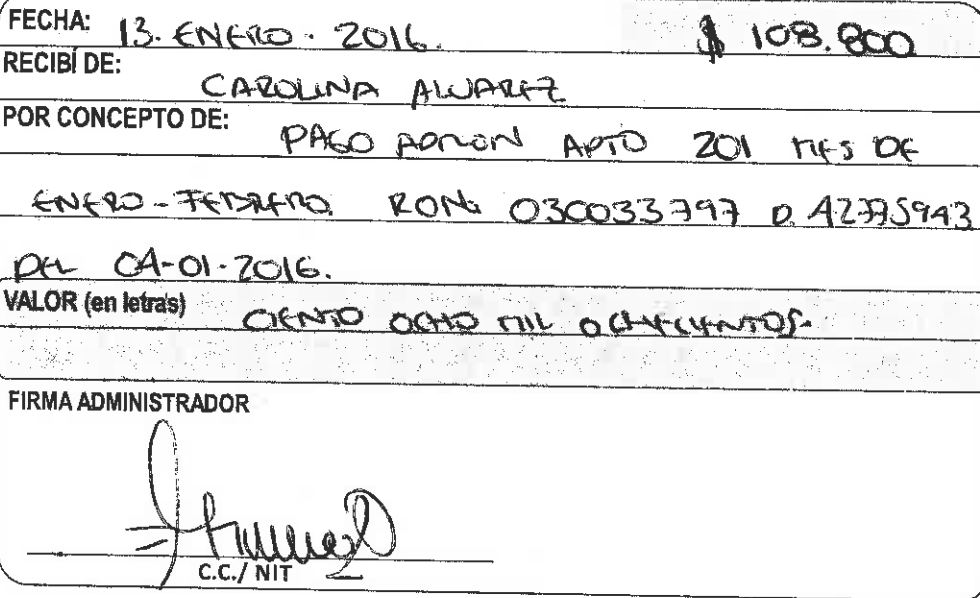 FECHA: 13. ENERO. 2016. $ 108.800
RECIBÍ DE:
CAROLINA ALVAREZ
POR CONCEPTO DE: PAGO ADMON APTO 201 MES DE
ENERO - FEBRERO. RON: 030033797 D. A2775943
DEL 04-01-2016.
VALOR (en letras) CIENTO OCHO MIL OCHOCIENTOS.
FIRMA ADMINISTRADOR
C.C./ NIT